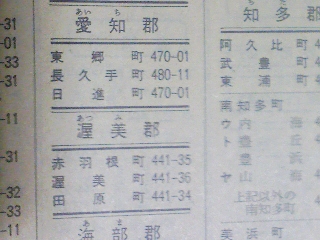 -31
-01
-33
-31
-11
-31
-32
-33
-11
あいち
愛知郡
東郷町 470-01
長久手町 480-11
日進町 470-01
あつみ
渥美郡
赤羽根町 441-35
渥美町 441-36
田原町 441-34
あま
海部郡
知多郡
阿久比町 4
武豊町 4
東浦町 4
南知多町
ウ内海
ト豊丘
豊浜
ヤ山海
上記以外の
南知多町
美浜町